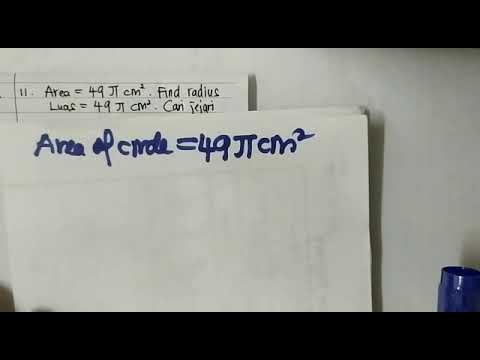 11. Area = 49 π cm². Find radius
Luas = 49 π cm². Cari jejari
Area of circle = 49 π cm²